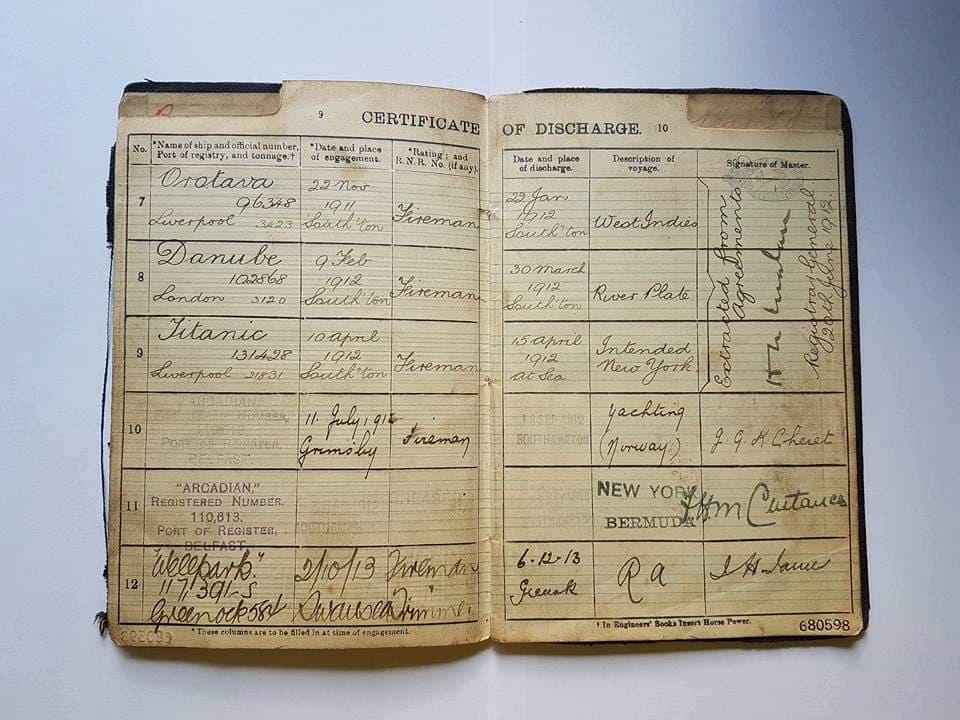 9 CERTIFICATE OF DISCHARGE. 10
No.
*Name of ship and official number,
Port of registry, and tonnage.†
*Date and place
of engagement.
*Rating; and
R.N.R. No. (if any).
Date and place
of discharge.
Description of
voyage.
Signature of Master.
7
Orotava
96348
Liverpool 3423
22 Nov
1911
South'ton
Fireman
22 Jan
1912
South'ton
West Indies
8
Danube
102868
London 3120
9 Feb
1912
South'ton
Fireman
30 March
1912
South'ton
River Plate
9
Titanic
131428
Liverpool 21831
10 April
1912
South'ton
Fireman
15 April
1912
at Sea
Intended
New York
Extracted from
Agreements
Registrar General
20th June 1912
10
ARCADIAN,
PORT OF REGISTER,
BELFAST.
11 July 191
Grimsby
Fireman
18 SEP 1912
SOUTHAMPTON
Yachting
(Norway)
11
"ARCADIAN,"
REGISTERED NUMBER.
110,613,
PORT OF REGISTER,
BELFAST.
SOUTHAMPTON
NEW YORK
BERMUDA
Custance
12
117,391-S
Greenock
2/10/13
Swansea
Fireman
Trimmer
6-12-13
RA
* These columns are to be filled in at time of engagement.
† In Engineers' Books Insert Horse Power.
680598